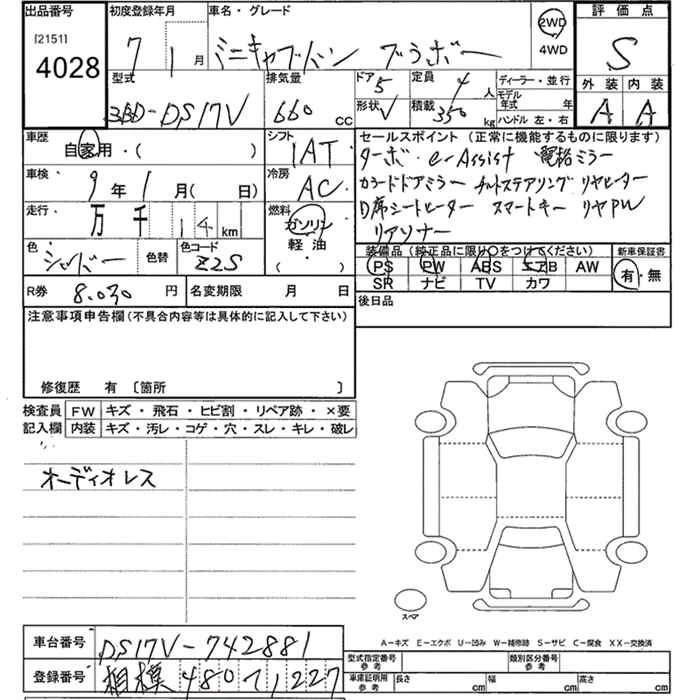 出品番号 初度登録年月 車名・グレード 2WD 評価点
[2151] 7 1月 ミニキャブバン ブラボー 4WD S
4028 型式 排気量 ドア 5 定員 4人 ディーラー・並行 外装 内装
3BD-DS17V 660cc 形状 V 積載 350kg モデル年式 年 A A
ハンドル 左・右
車歴 自家用・( ) シフト 1AT セールスポイント(正常に機能するものに限ります)
車検 9年1月(日) 冷房 AC ターボ e-Assist 電格ミラー
カラードドアミラー チルトステアリング リヤヒーター
走行 万千 14km 燃料 ガソリン D席シートヒーター スマートキー リヤPW
軽油 リアソナー
色 シルバー 色替 色コード Z2S ・( ) 装備品(純正品に限り○をつけてください) 新車保証書
PS PW ABS エアB AW 有・無
R券 8.030円 名変期限 月 日 SR ナビ TV カワ
注意事項申告欄(不具合内容等は具体的に記入して下さい) 後日品
修復歴 有 〔箇所 〕
検査員 FW キズ・飛石・ヒビ割・リペア跡・×要
記入欄 内装 キズ・汚レ・コゲ・穴・スレ・キレ・破レ
オーディオレス
スペア
A-キズ E-エクボ U-凹み W-補修跡 S-サビ C-腐食 XX-交換済
車台番号 DS17V-742881 型式指定番号 参考 類別区分番号 参考
登録番号 相模 480 ʻ1227 車庫証明用 参考 長さ cm 幅 cm 高さ cm